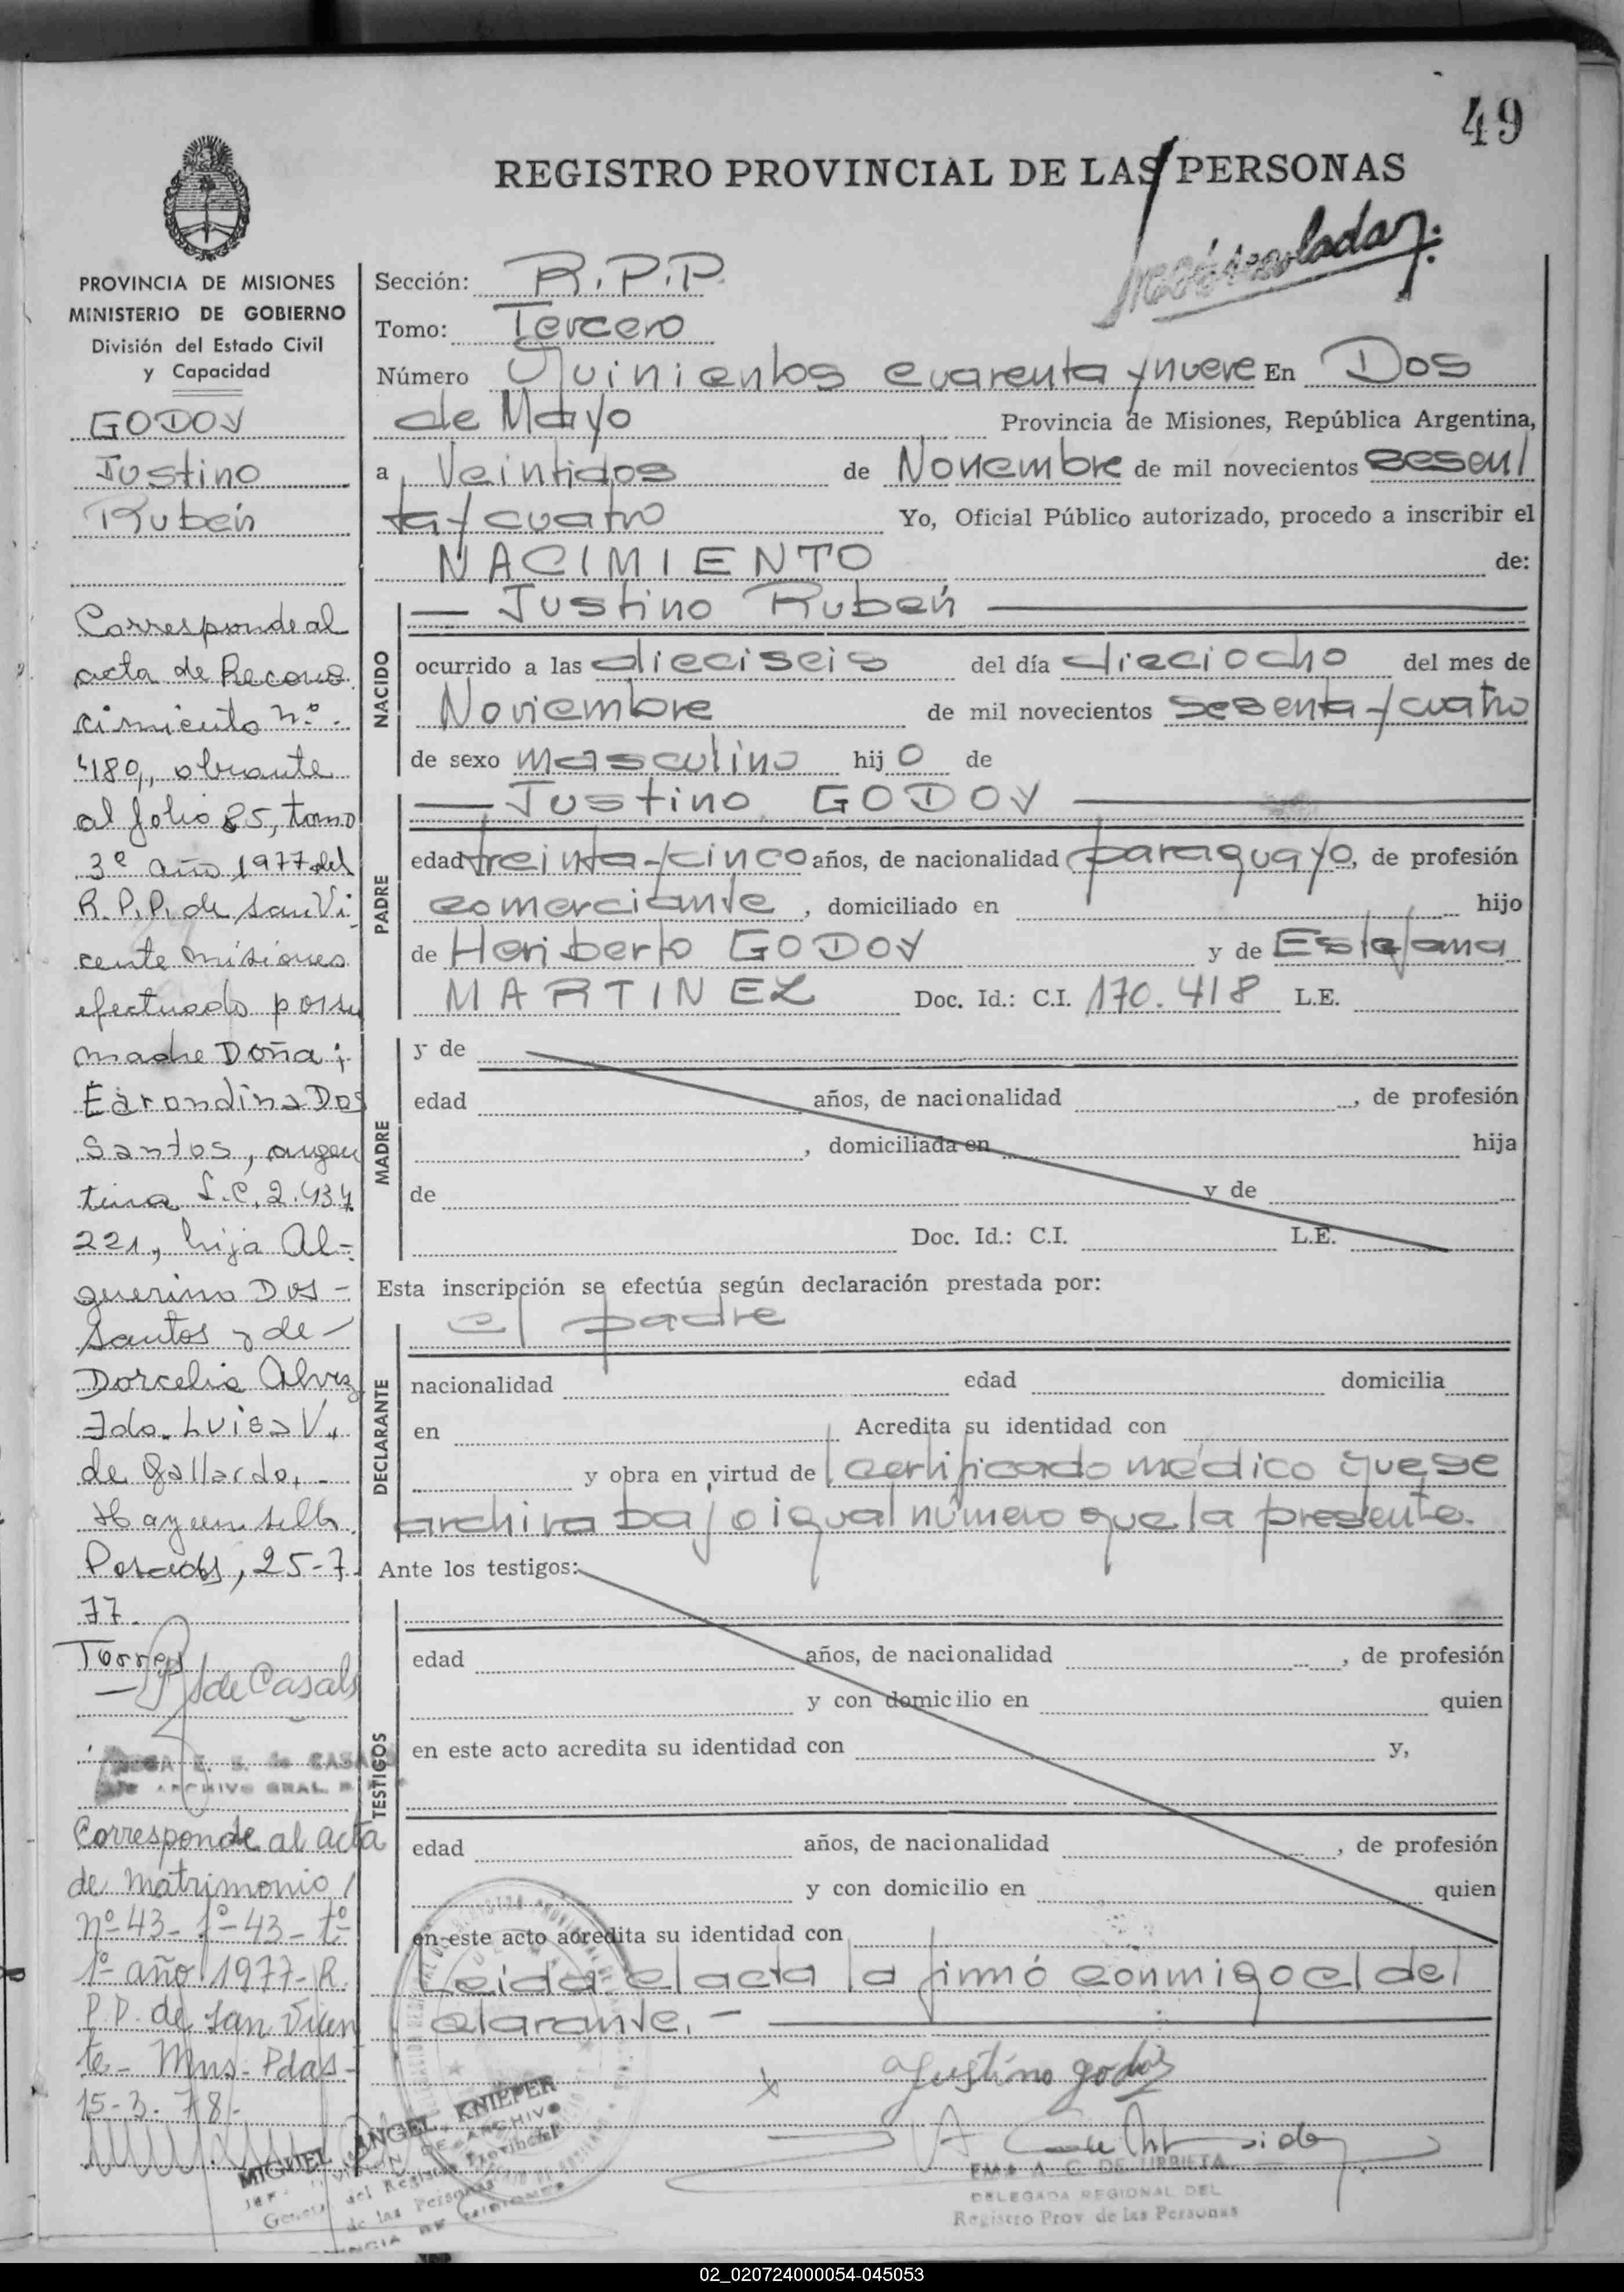 49
REGISTRO PROVINCIAL DE LAS PERSONAS
PROVINCIA DE MISIONES
MINISTERIO DE GOBIERNO
División del Estado Civil
y Capacidad
GODOY
Justino
Rubén
Corresponde al
acta de Recono
cimiento nº.
4189, obrante
al folio 85, tomo
3º año 1977 del
R.P.P. de San Vi
cente Misiones
efectuado por su
madre Doña:
Earondina Dos
Santos, argen
tina L.C. 2.434
221, hija Al-
guerino Dos-
Santos y de
Dorcelia Alvez
Fdo. Luisa V.
de Gallardo. -
Hay un sello
Posadas, 25-7-
77.
Torres
de Casals
E. S. de CASALS
ARCHIVO GRAL. R
Corresponde al acta
de matrimonio
nº 43 - fº 43 - tº
1º año 1977 - R.
P.P. de San Vicen
te - Mnes - Pdas -
15-3-78 -
MIGUEL ANGEL KNIEPER
DE ARCHIVO
General del Registro Provincial
de las Personas
Sección: R.P.P.
Tomo: Tercero
Número Quinientos cuarenta y nueve En Dos
de Mayo Provincia de Misiones, República Argentina,
a Veintidos de Noviembre de mil novecientos sesen/
ta y cuatro Yo, Oficial Público autorizado, procedo a inscribir el
NACIMIENTO de:
NACIDO
— Justino Rubén —
ocurrido a las dieciseis del día dieciocho del mes de
Noviembre de mil novecientos sesenta y cuatro
de sexo masculino hijo de
PADRE
— Justino GODOY —
edad treinta y cinco años, de nacionalidad paraguayo, de profesión
comerciante, domiciliado en hijo
de Heriberto GODOY y de Estefana
MARTINEZ Doc. Id.: C.I. 170.418 L.E.
MADRE
y de
edad años, de nacionalidad , de profesión
, domiciliada en hija
de y de
Doc. Id.: C.I. L.E.
Esta inscripción se efectúa según declaración prestada por:
DECLARANTE
el padre
nacionalidad edad domicilia
en Acredita su identidad con
y obra en virtud de certificado médico que se
archiva bajo igual número que la presente.
Ante los testigos:
TESTIGOS
edad años, de nacionalidad , de profesión
y con domicilio en quien
en este acto acredita su identidad con y,
edad años, de nacionalidad , de profesión
y con domicilio en quien
en este acto acredita su identidad con
Leida el acta la firmó conmigo el del
clarante. -
Justino Godoy
EMA A. C. DE URBIETA
DELEGADA REGIONAL DEL
Registro Prov de las Personas
02_020724000054-045053